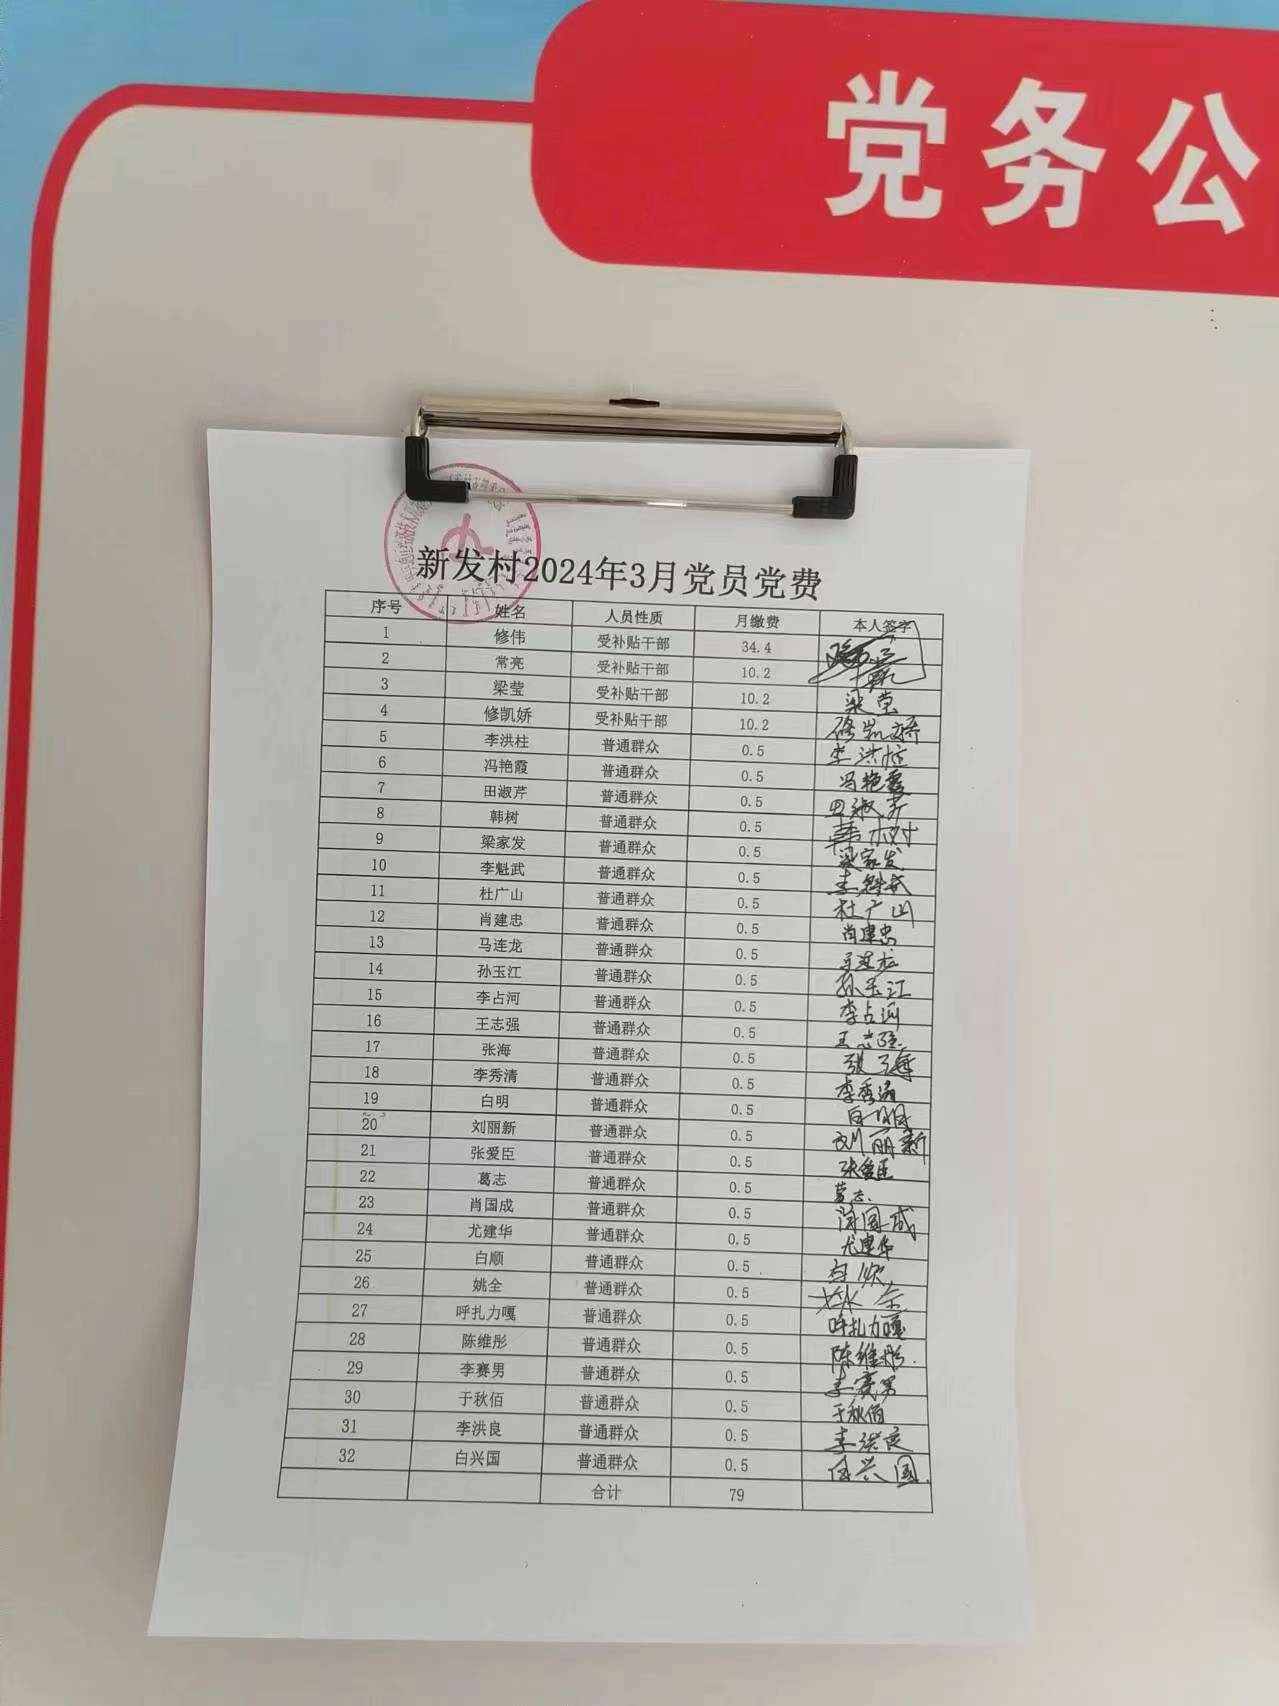 党务公
新发村2024年3月党员党费
序号 姓名 人员性质 月缴费 本人签字
1 修伟 受补贴干部 34.4
2 常亮 受补贴干部 10.2
3 梁莹 受补贴干部 10.2 梁莹
4 修凯娇 受补贴干部 10.2 修凯娇
5 李洪柱 普通群众 0.5 李洪柱
6 冯艳霞 普通群众 0.5 冯艳霞
7 田淑芹 普通群众 0.5 田淑芹
8 韩树 普通群众 0.5 韩树
9 梁家发 普通群众 0.5 梁家发
10 李魁武 普通群众 0.5 李魁武
11 杜广山 普通群众 0.5 杜广山
12 肖建忠 普通群众 0.5 肖建忠
13 马连龙 普通群众 0.5 马连龙
14 孙玉江 普通群众 0.5 孙玉江
15 李占河 普通群众 0.5 李占河
16 王志强 普通群众 0.5 王志强
17 张海 普通群众 0.5 张海
18 李秀清 普通群众 0.5 李秀清
19 白明 普通群众 0.5 白明
20 刘丽新 普通群众 0.5 刘丽新
21 张爱臣 普通群众 0.5 张爱臣
22 葛志 普通群众 0.5 葛志
23 肖国成 普通群众 0.5 肖国成
24 尤建华 普通群众 0.5 尤建华
25 白顺 普通群众 0.5 白顺
26 姚全 普通群众 0.5 姚全
27 呼扎力嘎 普通群众 0.5 呼扎力嘎
28 陈维彤 普通群众 0.5 陈维彤
29 李赛男 普通群众 0.5 李赛男
30 于秋佰 普通群众 0.5 于秋佰
31 李洪良 普通群众 0.5 李洪良
32 白兴国 普通群众 0.5 白兴国
合计 79